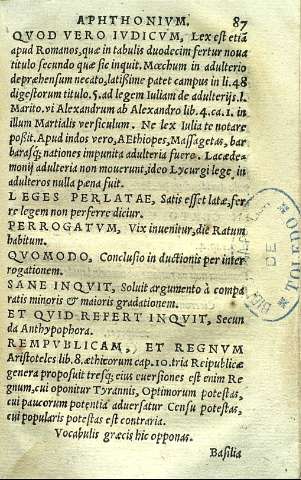 APHTHONIVM. 87
QVOD VERO IVDICVM, Lex est etiã
apud Romanos, quæ in tabulis duodecim fertur noua
titulo secundo quæ sic inquit. Mœchum in adulterio
depræhensum necato, latißime patet campus in li. 48
digestorum titulo. 5. ad legem Iuliam de adulterijs. l.
Marito. vi Alexandrum ab Alexandro lib. 4. ca. 1. in
illum Martialis versiculum. Ne lex Iulia te notare
poßit. Apud indos vero, AEthiopes, Massagetas, bar
barasq; nationes impunita adulteria fuere. Lacedæ-
monij adulteria non mouerunt, ideo Lycurgi lege, in
adulteros nulla pœna fuit.
LEGES PERLATAE, Satis esset latæ, fer
re legem non perferre dicitur.
PERROGATVM, Vix inuenitur, die Ratum
habitum.
QVOMODO, Conclusio in ductionis per inter
rogationem.
SANE INQVIT, Soluit argumento à compa
ratis minoris & maioris gradationem.
ET QVID REFERT INQVIT, Secun
da Anthypophora.
REMPVBLICAM, ET REGNVM
Aristoteles lib. 8. æthicorum cap. 10. tria Reipublicæ
genera proposuit tresq; eius euersiones est enim Re
gnum, cui oponitur Tyrannis, Optimorum potestas,
cui paucorum potentia aduersatur Censu potestas,
cui popularis potestas est contraria.
Vocabulis græcis hic opponas.
Basilia